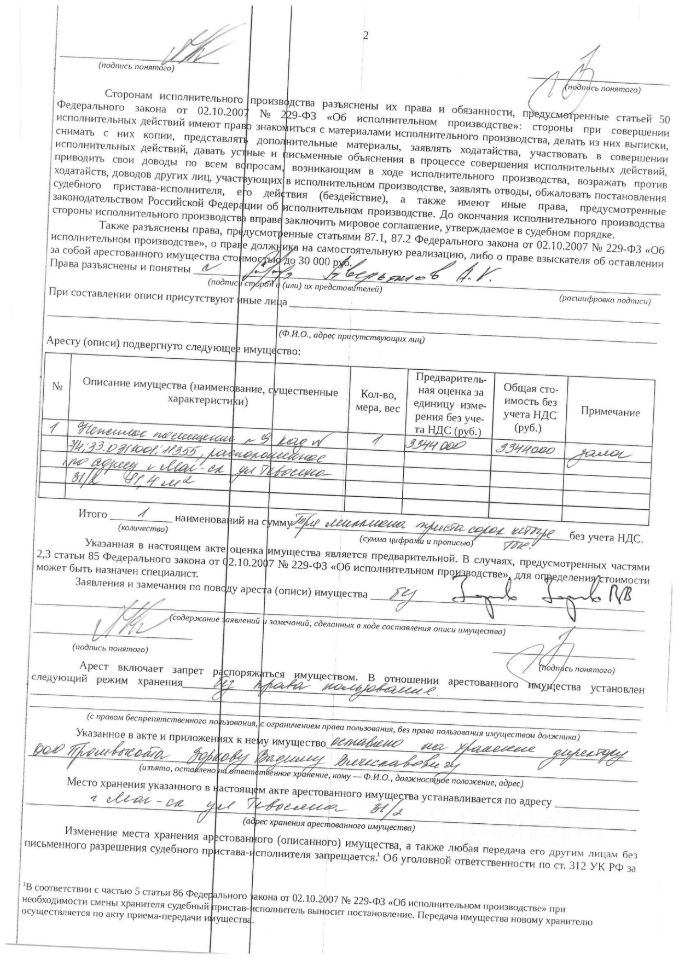 2
(подпись понятого)
(подпись понятого)
Сторонам исполнительного производства разъяснены их права и обязанности, предусмотренные статьей 50
Федерального закона от 02.10.2007 № 229-ФЗ «Об исполнительном производстве»: стороны при совершении
исполнительных действий имеют право знакомиться с материалами исполнительного производства, делать из них выписки,
снимать с них копии, представлять дополнительные материалы, заявлять ходатайства, участвовать в совершении
исполнительных действий, давать устные и письменные объяснения в процессе совершения исполнительных действий,
приводить свои доводы по всем вопросам, возникающим в ходе исполнительного производства, возражать против
ходатайств, доводов других лиц, участвующих в исполнительном производстве, заявлять отводы, обжаловать постановления
судебного пристава-исполнителя, его действия (бездействие), а также имеют иные права, предусмотренные
законодательством Российской Федерации об исполнительном производстве. До окончания исполнительного производства
стороны исполнительного производства вправе заключить мировое соглашение, утверждаемое в судебном порядке.
Также разъяснены права, предусмотренные статьями 87.1, 87.2 Федерального закона от 02.10.2007 № 229-ФЗ «Об
исполнительном производстве», о праве должника на самостоятельную реализацию, либо о праве взыскателя об оставлении
за собой арестованного имущества стоимостью до 30 000 руб.
Права разъяснены и понятны
(подписи сторон и (или) их представителей) (расшифровка подписи)
При составлении описи присутствуют иные лица
(Ф.И.О., адрес присутствующих лиц)
Аресту (описи) подвергнуто следующее имущество:
№ Описание имущества (наименование, существенные характеристики) Кол-во, мера, вес Предваритель-ная оценка за единицу изме-рения без уче-та НДС (руб.) Общая сто-имость без учета НДС (руб.) Примечание
1 Нежилое помещение 1 3344000 3344000 залог
расположенное
по адресу г. Маг-ск ул Тевосяна
31/2 81,4 м2
Итого 1 наименований на сумму Три миллиона триста сорок четыре без учета НДС.
(количество) (сумма цифрами и прописью) тыс.
Указанная в настоящем акте оценка имущества является предварительной. В случаях, предусмотренных частями
2,3 статьи 85 Федерального закона от 02.10.2007 № 229-ФЗ «Об исполнительном производстве», для определения стоимости
может быть назначен специалист.
Заявления и замечания по поводу ареста (описи) имущества
(содержание заявлений и замечаний, сделанных в ходе составления описи имущества)
(подпись понятого)
(подпись понятого)
Арест включает запрет распоряжаться имуществом. В отношении арестованного имущества установлен
следующий режим хранения без права пользования
(с правом беспрепятственного пользования, с ограничением права пользования, без права пользования имуществом должника)
Указанное в акте и приложениях к нему имущество оставлено на хранение директору
ООО Промвысота Зоркову Вадиму Вячеславовичу
(изъято, оставлено на ответственное хранение, кому — Ф.И.О., должностное положение, адрес)
Место хранения указанного в настоящем акте арестованного имущества устанавливается по адресу
г Маг-ск ул Тевосяна 31/2
(адрес хранения арестованного имущества)
Изменение места хранения арестованного (описанного) имущества, а также любая передача его другим лицам без
письменного разрешения судебного пристава-исполнителя запрещается.¹ Об уголовной ответственности по ст. 312 УК РФ за
¹В соответствии с частью 5 статьи 86 Федерального закона от 02.10.2007 № 229-ФЗ «Об исполнительном производстве» при
необходимости смены хранителя судебный пристав-исполнитель выносит постановление. Передача имущества новому хранителю
осуществляется по акту приема-передачи имущества.